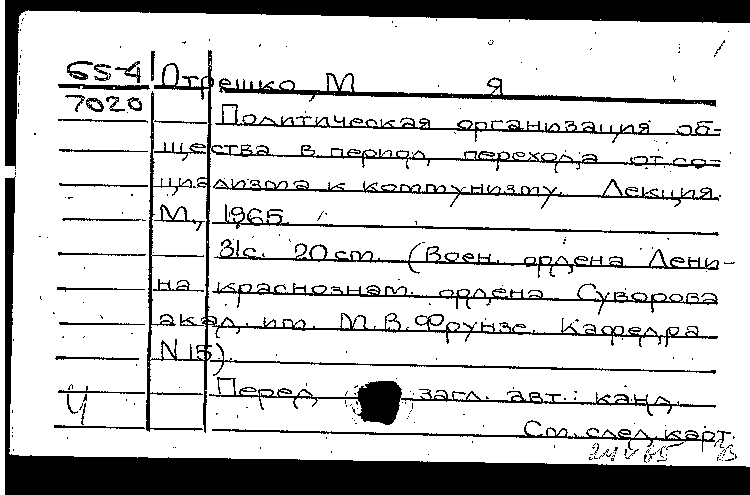 65-4 Отрешко, М Я
7020
Политическая организация об-
щества в период перехода от со-
циализма к коммунизму. Лекция.
М., 1965.
31с. 20см. (Воен. ордена Лени-
на краснознам. ордена Суворова
акад. им. М.В.Фрунзе. Кафедра
N 15).
Перед загл. авт.: канд.
Ч
См. след. карт.
24 V 65